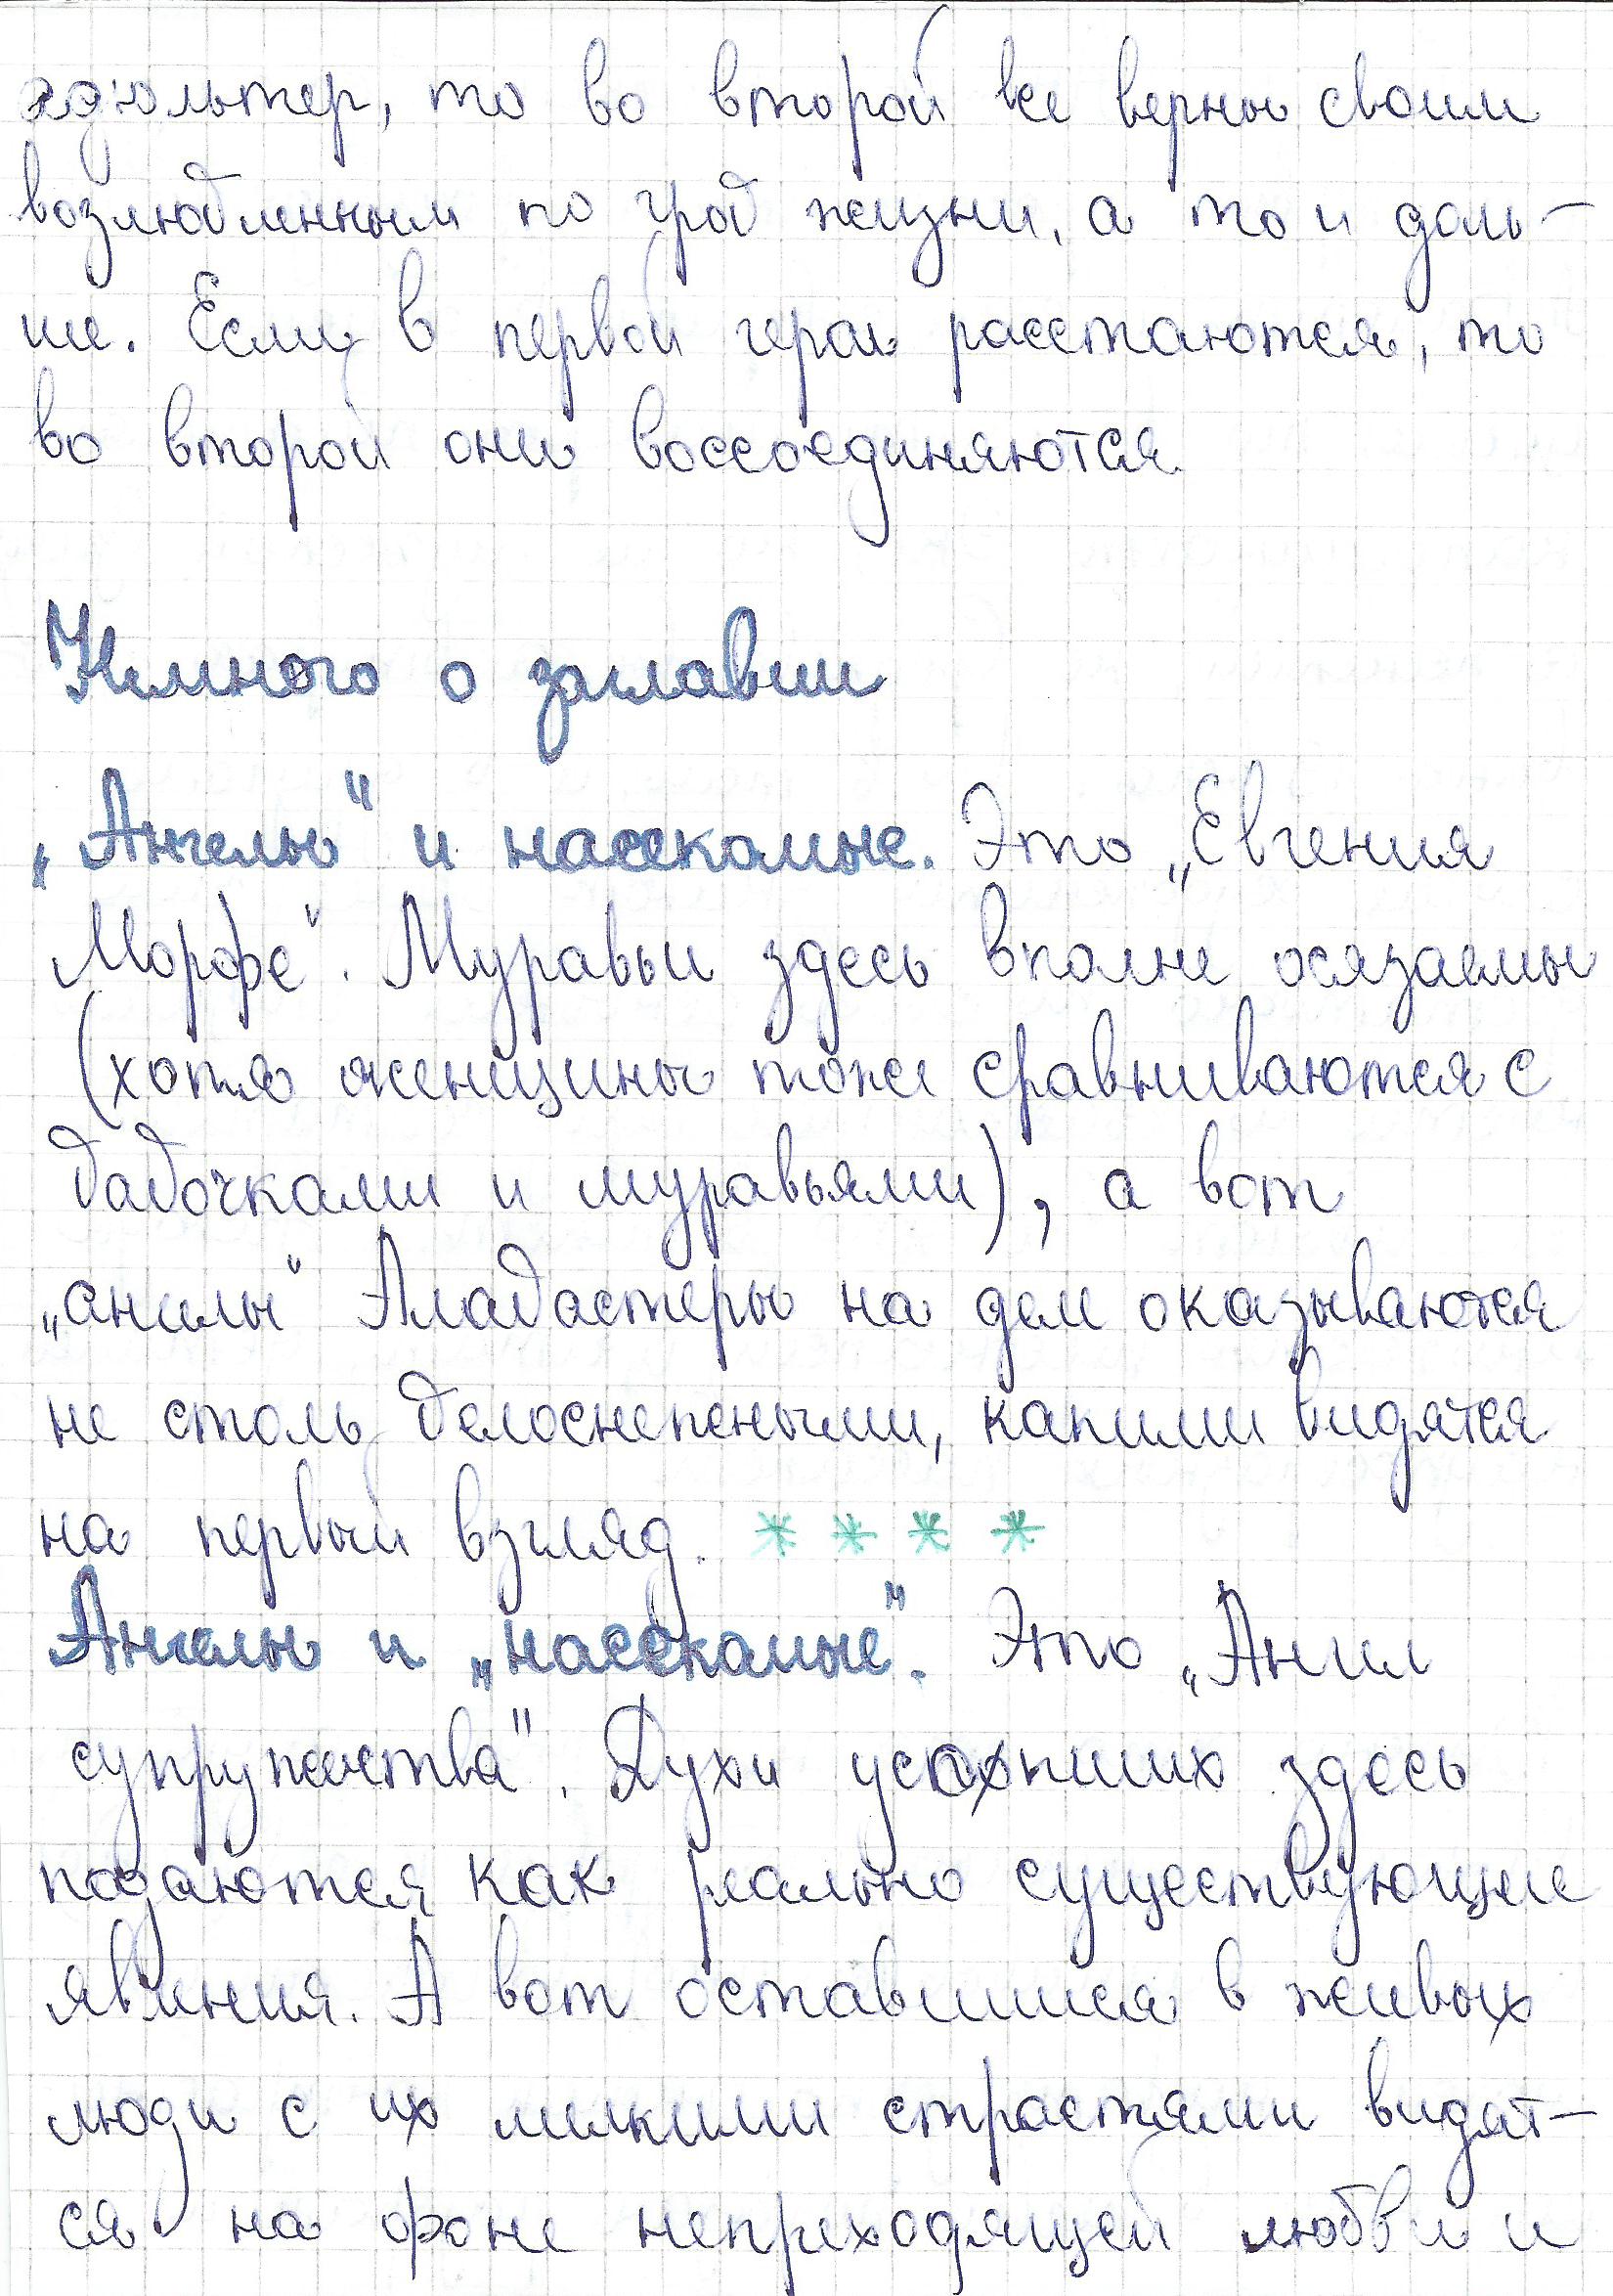 адюльтер, то во второй все верны своим
возлюбленным по гроб жизни, а то и доль-
ше. Если в первой герои расстаются, то
во второй они воссоединяются.
Немного о заглавии
„Ангелы" и насекомые. Это „Евгения
Морфо". Муравьи здесь вполне осязаемы
(хотя женщины тоже сравниваются с
бабочками и муравьями), а вот
„ангелы" Алабастеры на деле оказываются
не столь белоснежными, какими видятся
на первый взгляд. * * * *
Ангелы и „насекомые". Это „Ангел
супружества". Духи усопших здесь
подаются как реально существующие
явления. А вот оставшиеся в живых
люди с их мелкими страстями видят-
ся на фоне непреходящей любви и